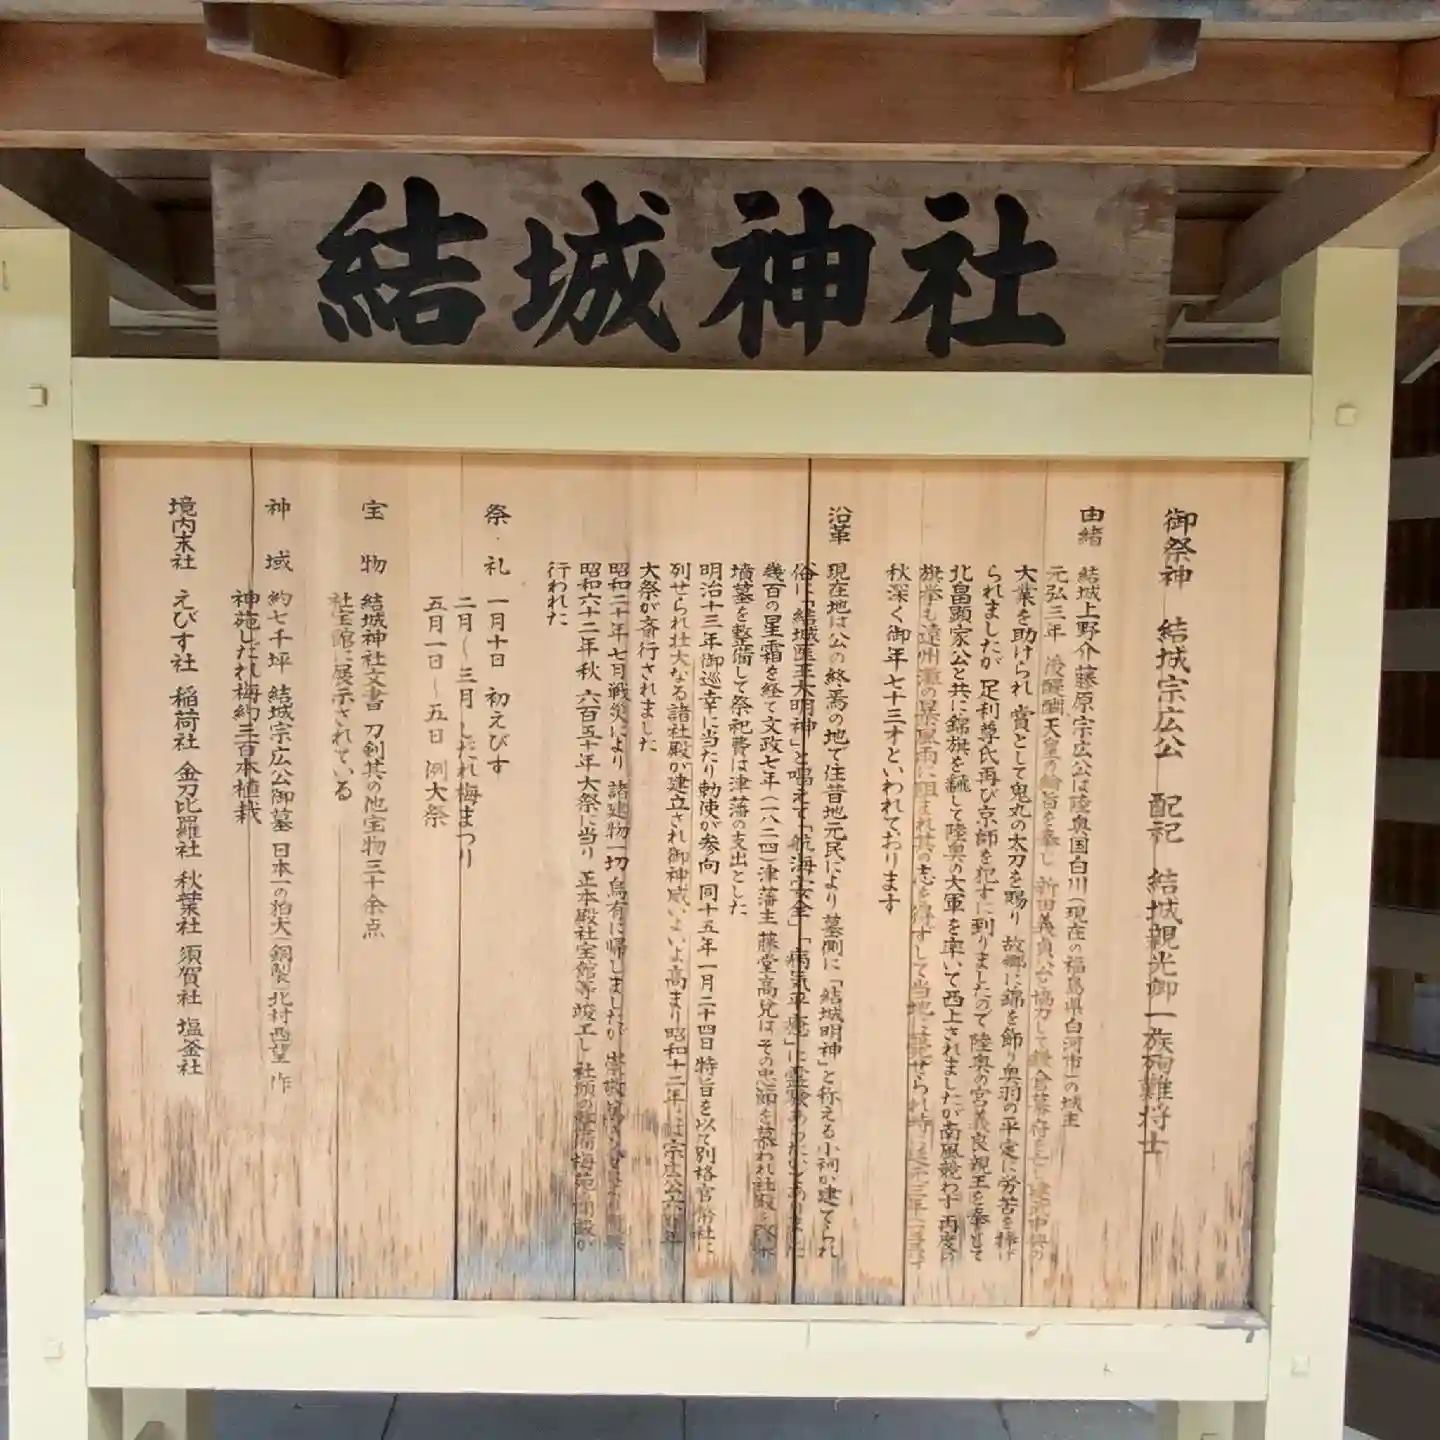 結城神社
御祭神 結城宗広公 配祀 結城親光御一族殉難将士
由緒
結城上野介藤原宗広公は陸奥国白川(現在の福島県白河市)の城主
元弘三年 後醍醐天皇の綸旨を奉じ 新田義貞公と協力して鎌倉幕府を亡し建武中興の
大業を助けられ 賞として鬼丸の太刀を賜り 故郷に錦を飾り奥羽の平定に労苦を捧げ
られましたが 足利尊氏再び京師を犯すに到りましたので 陸奥の宮義良親王を奉じて
北畠顕家公と共に錦旗を飜して陸奥の大軍を率いて西上されましたが南風競わず 再度の
旗挙も遠州灘の暴風雨に阻まれ其の志を得ずして当地に
秋深く御年七十三才といわれております
沿革
現在地は公の終焉の地で往昔地元民により 墓側に「結城明神」と称える小祠が建てられ
俗に「結城医王大明神」と唱えて「航海安全」「病気平癒」に霊験あらたかであり
幾百の星霜を経て文政七年(一八二四)津藩主 藤堂高兌はその忠節を慕われ社殿を改築
墳墓を整備して祭祀費は津藩の支出とした
明治十三年御巡幸に当たり勅使が参向 同十五年一月二十四日 特旨を以て別格官幣社に
列せられ壮大なる諸社殿が建立され御神威いよいよ高まり昭和十二年には宗広公六百年
大祭が斎行されました
昭和二十年七月戦災により 諸建物一切 烏有に帰しましたが 崇敬
昭和六十二年秋 六百五十年大祭に当り 正本殿社宝館等竣工し 社頭の整備梅苑の開設が
行われた
祭礼 一月十日 初えびす
二月〜三月 しだれ梅まつり
五月一日〜五日 例大祭
宝物 結城神社文書 刀剣其の他宝物三十余点
社宝館に展示されている
神域 約七千坪 結城宗広公御墓 日本一の狛犬(銅製)北村西望 作
神苑しだれ梅約三百本植栽
境内末社 えびす社 稲荷社 金刀比羅社 秋葉社 須賀社 塩釜社